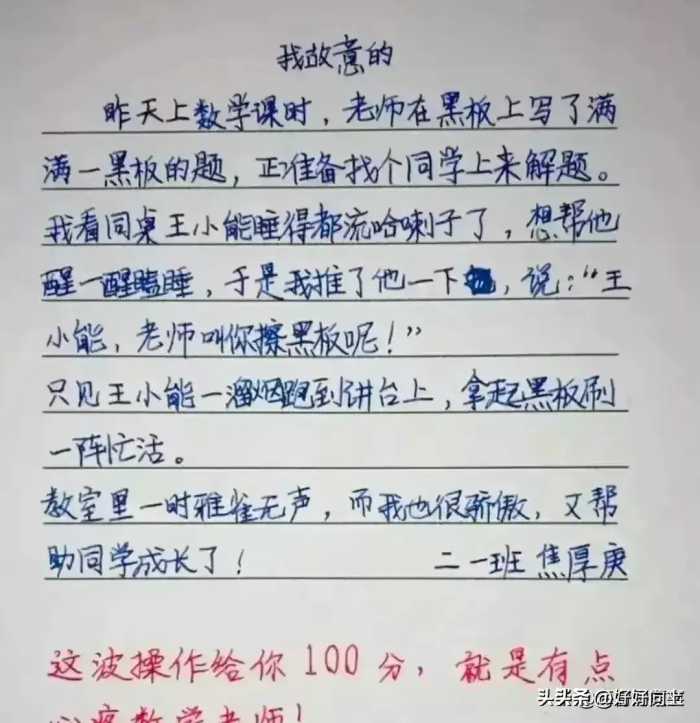 我故意的
昨天上数学课时，老师在黑板上写了满
满一黑板的题，正准备找个同学上来解题。
我看同桌王小能睡得都流哈喇子了，想帮他
醒一醒瞌睡，于是我推了他一下，说：“王
小能，老师叫你擦黑板呢！”
只见王小能一溜烟跑到讲台上，拿起黑板刷
一阵忙活。
教室里一时雅雀无声，而我也很骄傲，又帮
助同学成长了！ 二一班 焦厚庚
这波操作给你100分，就是有点
心疼数学老师！
头条@好好问董